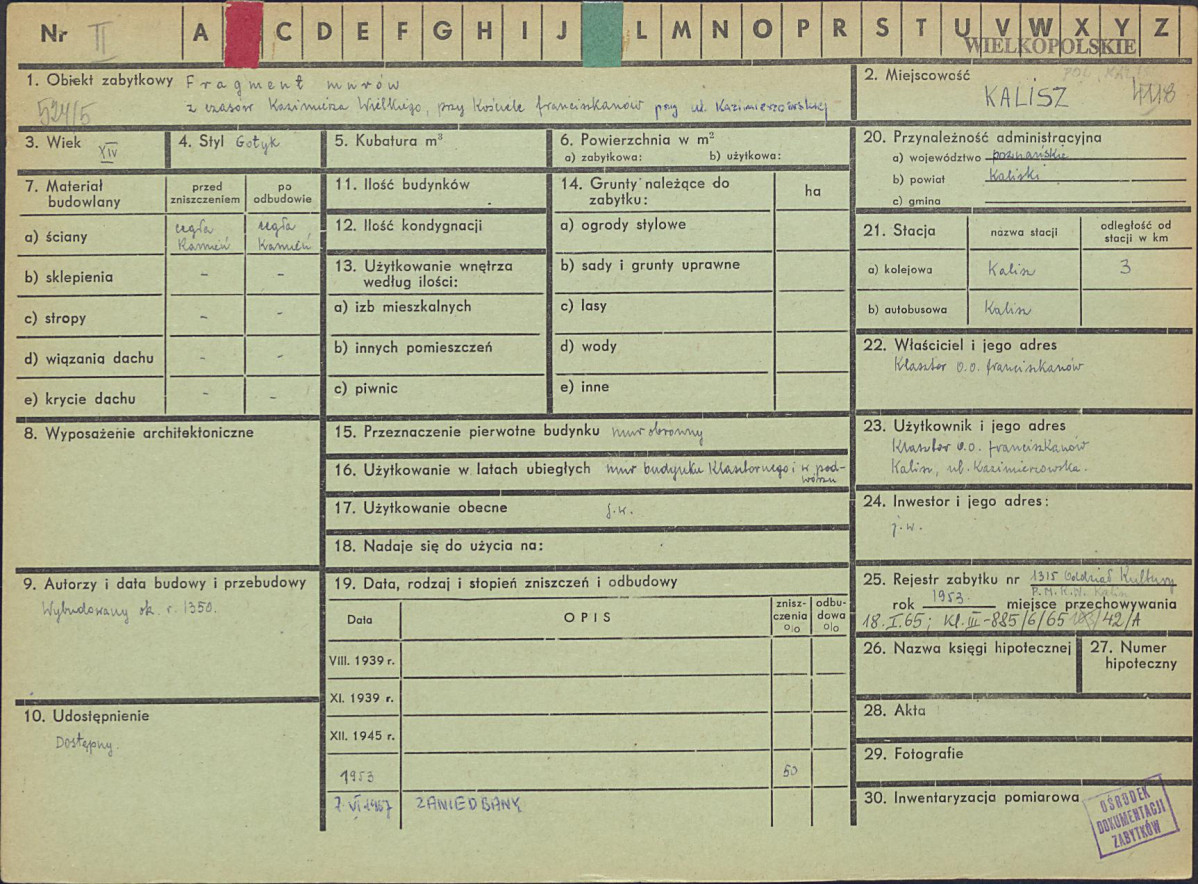 Nr II A C D E F G H I J L M N O P R S T U V W X Y Z
WIELKOPOLSKIE
1. Obiekt zabytkowy Fragment murów
z czasów Kazimierza Wielkiego, przy Kościele franciszkanów przy ul. Kazimierzowskiej
524/5
2. Miejscowość
KALISZ 4118
3. Wiek XIV
4. Styl Gotyk
5. Kubatura m³
6. Powierzchnia w m²
a) zabytkowa: b) użytkowa:
7. Materiał budowlany
przed zniszczeniem
po odbudowie
a) ściany cegła Kamień cegła Kamień
b) sklepienia - -
c) stropy - -
d) wiązania dachu - -
e) krycie dachu - -
8. Wyposażenie architektoniczne
9. Autorzy i data budowy i przebudowy
Wybudowany ok. r. 1350.
10. Udostępnienie
Dostępny.
11. Ilość budynków
12. Ilość kondygnacji
13. Użytkowanie wnętrza
według ilości:
a) izb mieszkalnych
b) innych pomieszczeń
c) piwnic
14. Grunty należące do
zabytku:
ha
a) ogrody stylowe
b) sady i grunty uprawne
c) lasy
d) wody
e) inne
15. Przeznaczenie pierwotne budynku mur obronny
16. Użytkowanie w latach ubiegłych mur budynku Klasztornego i w pod-
wórzu
17. Użytkowanie obecne j.w.
18. Nadaje się do użycia na:
19. Data, rodzaj i stopień zniszczeń i odbudowy
Data OPIS znisz-czenia o/o odbu-dowa o/o
VIII. 1939 r.
XI. 1939 r.
XII. 1945 r.
1953 50
7.VI 1967 ZANIEDBANY
20. Przynależność administracyjna
a) województwo poznańskie
b) powiat Kaliski
c) gmina
21. Stacja nazwa stacji odległość od stacji w km
a) kolejowa Kalisz 3
b) autobusowa Kalisz
22. Właściciel i jego adres
Klasztor o.o. franciszkanów
23. Użytkownik i jego adres
Klasztor o.o. franciszkanów
Kalisz, ul. Kazimierzowska.
24. Inwestor i jego adres:
j.w.
25. Rejestr zabytku nr 1315 Oddział Kultury
P.M.R.N. Kalisz
rok 1953. miejsce przechowywania
18.I.65; Kl.III-885/6/65 /42/A
26. Nazwa księgi hipotecznej
27. Numer
hipoteczny
28. Akta
29. Fotografie
30. Inwentaryzacja pomiarowa
OŚRODEK
DOKUMENTACJI
ZABYTKÓW